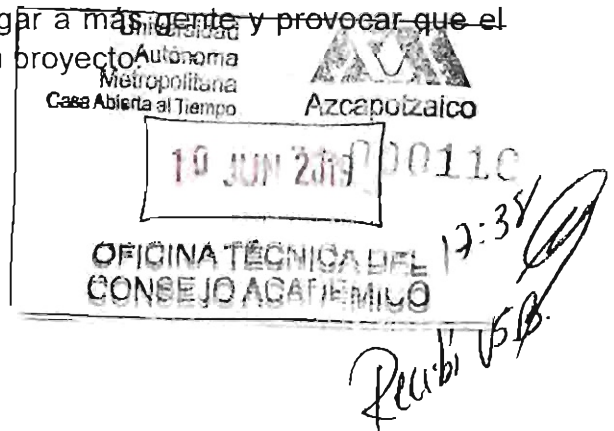 gar a más gente y provocar que el
proyecto.
Universidad
Autónoma
Metropolitana
Casa Abierta al Tiempo
Azcapotzalco
10 JUN 2019
OFICINA TÉCNICA DEL
CONSEJO ACADÉMICO
Recibí